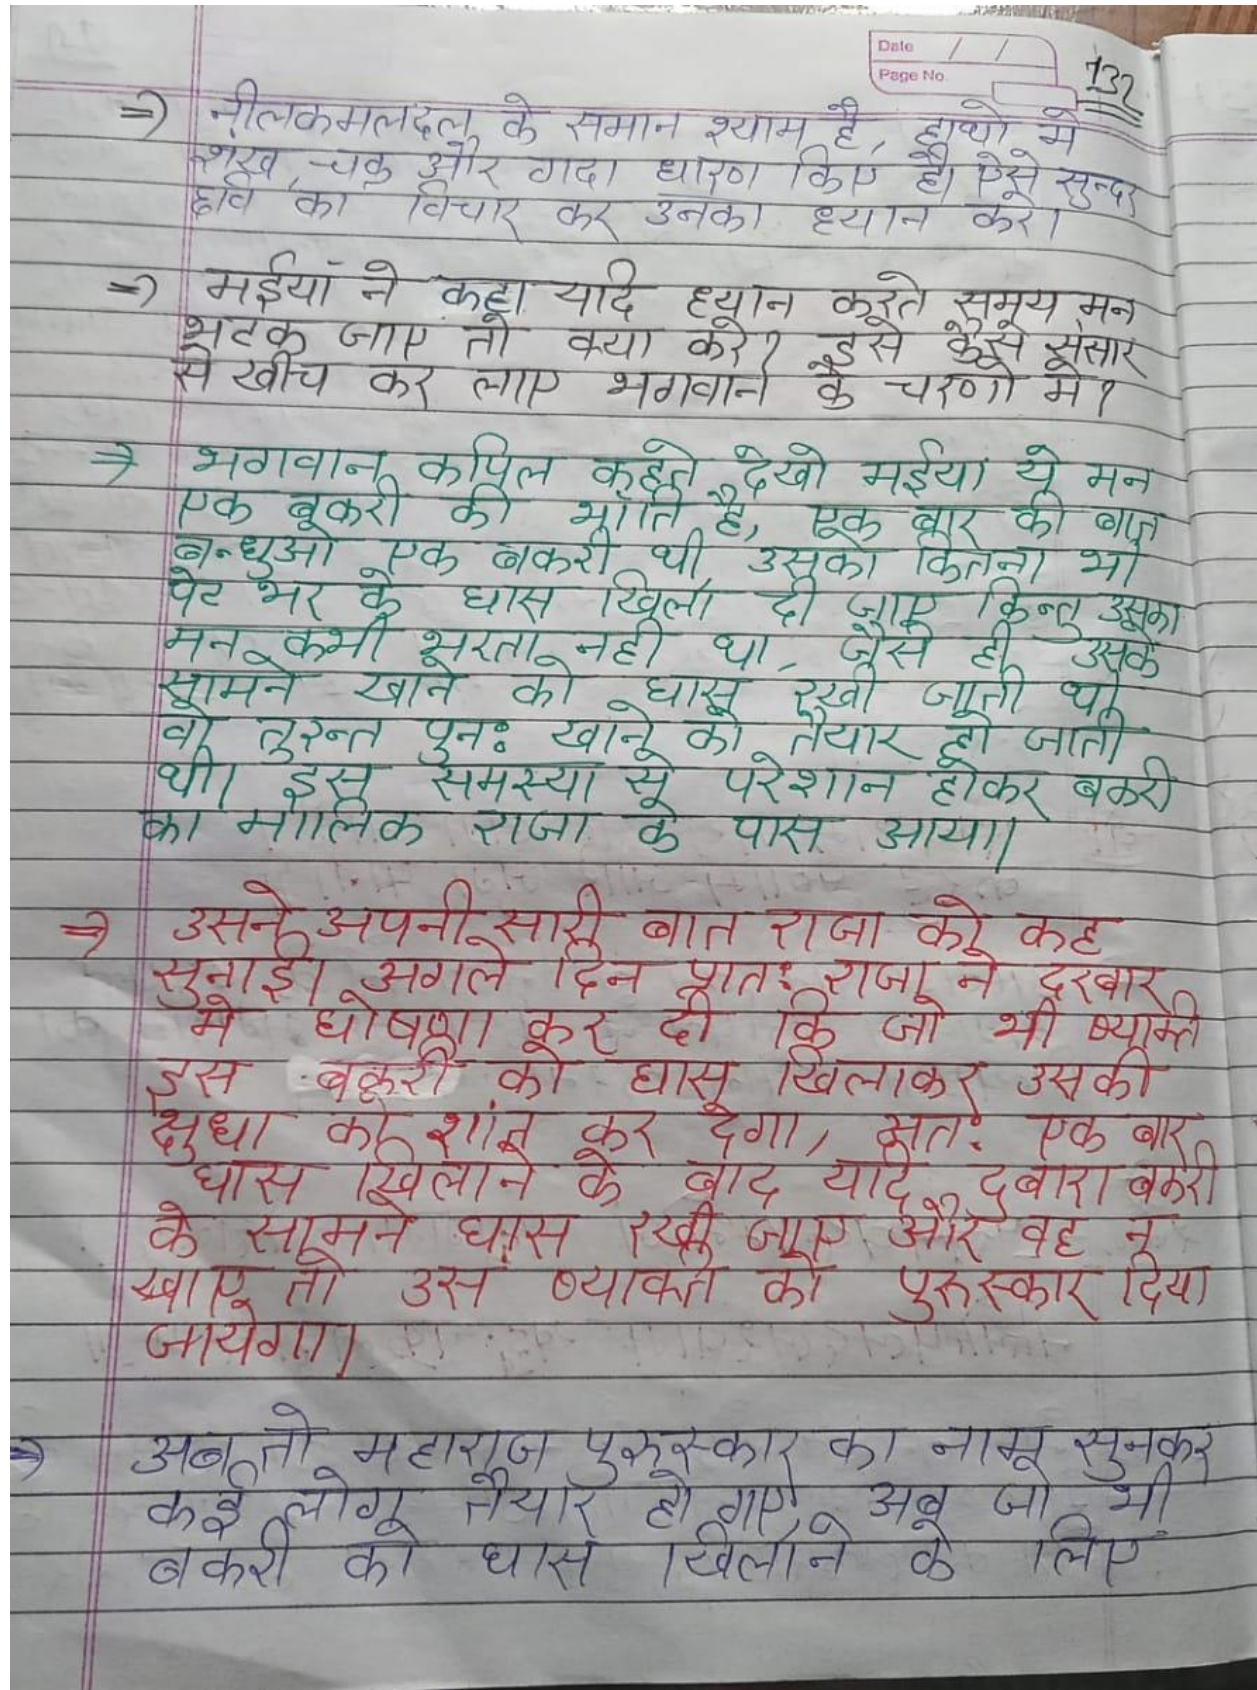 Date / /
Page No.
132
⇒ नीलकमलदल के समान श्याम है, हाथो मे
शंख, चक्र और गदा धारण किए है। ऐसे सुन्दर
छवि का विचार कर उनका ध्यान करे।
⇒ मईयां ने कहा यदि ध्यान करते समय मन
भटक जाए तो क्या करे? इसे कैसे संसार
से खींच कर लाए भगवान के चरणो मे?
⇒ भगवान कपिल कहते देखो मईयां ये मन
एक बकरी की भांति है, एक बार की बात
बन्धुओ एक बकरी थी, उसको कितना भी
पेट भर के घास खिला दी जाए किन्तु उसका
मन कभी भरता नही था, जैसे ही उसके
सामने खाने को घास रखी जाती थी
वो तुरन्त पुनः खाने को तैयार हो जाती
थी। इस समस्या से परेशान होकर बकरी
का मालिक राजा के पास आया।
⇒ उसने अपनी सारी बात राजा को कह
सुनाई। अगले दिन प्रातः राजा ने दरबार
मे घोषणा कर दी कि जो भी व्यक्ति
इस बकरी को घास खिलाकर उसकी
क्षुधा को शांत कर देगा, अतः एक बार
घास खिलाने के बाद यदि दुबारा बकरी
के सामने घास रखी जाए और वह न
खाए तो उस व्यक्ति को पुरुस्कार दिया
जायेगा।
⇒ अब तो महाराज पुरुस्कार का नाम सुनकर
कई लोग तैयार हो गए, अब जो भी
बकरी को घास खिलाने के लिए